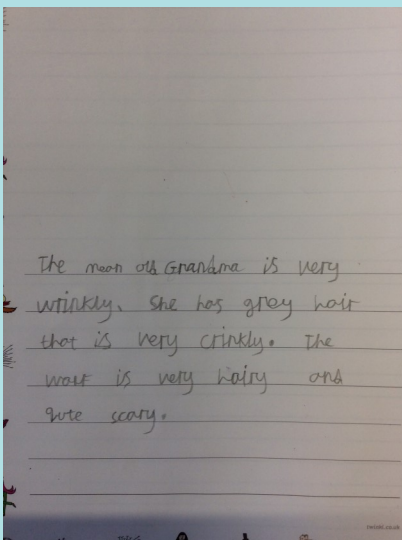 The mean old Grandma is very
wrinkly. She has grey hair
that is very crinkly. The
wart is very hairy and
qute scary.
twinkl.co.uk